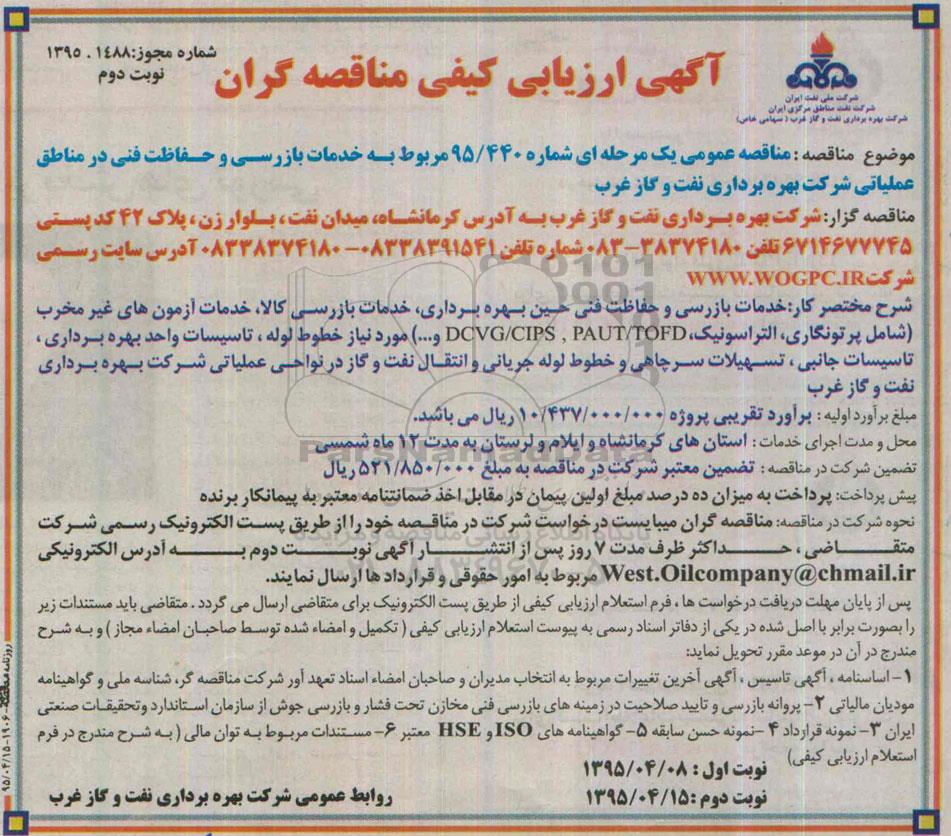 شماره مجوز: ۱۴۸۸ . ۱۳۹۵
نوبت دوم
آگهی ارزیابی کیفی مناقصه گران
شرکت ملی نفت ایران
شرکت نفت مناطق مرکزی ایران
شرکت بهره برداری نفت و گاز غرب ( سهامی خاص)
موضوع مناقصه : مناقصه عمومی یک مرحله ای شماره ۹۵/۴۴۰ مربوط به خدمات بازرسی و حفاظت فنی در مناطق
عملیاتی شرکت بهره برداری نفت و گاز غرب
مناقصه گزار: شرکت بهره برداری نفت و گاز غرب به آدرس کرمانشاه، میدان نفت ، بلوار زن ، پلاک ۴۲ کد پستی
۶۷۱۴۶۷۷۷۴۵ تلفن ۳۸۳۷۴۱۸۰-۰۸۳ شماره تلفن ۰۸۳۳۸۳۹۱۵۴۱ – ۰۸۳۳۸۳۷۴۱۸۰ آدرس سایت رسمی
شرکت WWW.WOGPC.IR
شرح مختصر کار: خدمات بازرسی و حفاظت فنی حین بهره برداری، خدمات بازرسی کالا، خدمات آزمون های غیر مخرب
(شامل پرتونگاری، التراسونیک، DCVG/CIPS , PAUT/TOFD و...) مورد نیاز خطوط لوله ، تاسیسات واحد بهره برداری ،
تاسیسات جانبی ، تسهیلات سرچاهی و خطوط لوله جریانی و انتقال نفت و گاز در نواحی عملیاتی شرکت بهره برداری
نفت و گاز غرب
مبلغ برآورد اولیه : برآورد تقریبی پروژه ۱۰/۴۳۷/۰۰۰/۰۰۰ ریال می باشد.
محل و مدت اجرای خدمات : استان های کرمانشاه و ایلام و لرستان به مدت ۱۲ ماه شمسی
تضمین شرکت در مناقصه : تضمین معتبر شرکت در مناقصه به مبلغ ۵۲۱/۸۵۰/۰۰۰ ریال
پیش پرداخت: پرداخت به میزان ده درصد مبلغ اولین پیمان در مقابل اخذ ضمانتنامه معتبر به پیمانکار برنده
نحوه شرکت در مناقصه: مناقصه گران میبایست درخواست شرکت در مناقصه خود را از طریق پست الکترونیک رسمی شرکت
متقاضی ، حداکثر ظرف مدت ۷ روز پس از انتشار آگهی نوبت دوم به آدرس الکترونیکی
West.Oilcompany@chmail.ir مربوط به امور حقوقی و قرارداد ها ارسال نمایند.
پس از پایان مهلت دریافت درخواست ها ، فرم استعلام ارزیابی کیفی از طریق پست الکترونیک برای متقاضی ارسال می گردد . متقاضی باید مستندات زیر
را بصورت برابر با اصل شده در یکی از دفاتر اسناد رسمی به پیوست استعلام ارزیابی کیفی ( تکمیل و امضاء شده توسط صاحبان امضاء مجاز ) و به شرح
مندرج در آن در موعد مقرر تحویل نماید:
۱- اساسنامه ، آگهی تاسیس ، آگهی آخرین تغییرات مربوط به انتخاب مدیران و صاحبان امضاء اسناد تعهد آور شرکت مناقصه گر، شناسه ملی و گواهینامه
مودیان مالیاتی ۲- پروانه بازرسی و تایید صلاحیت در زمینه های بازرسی فنی مخازن تحت فشار و بازرسی جوش از سازمان استاندارد وتحقیقات صنعتی
ایران ۳- نمونه قرارداد ۴ -نمونه حسن سابقه ۵- گواهینامه های ISO و HSE معتبر ۶- مستندات مربوط به توان مالی ( به شرح مندرج در فرم
استعلام ارزیابی کیفی)
نوبت اول : ۱۳۹۵/۰۴/۰۸
نوبت دوم : ۱۳۹۵/۰۴/۱۵
روابط عمومی شرکت بهره برداری نفت و گاز غرب
ParsNamadData